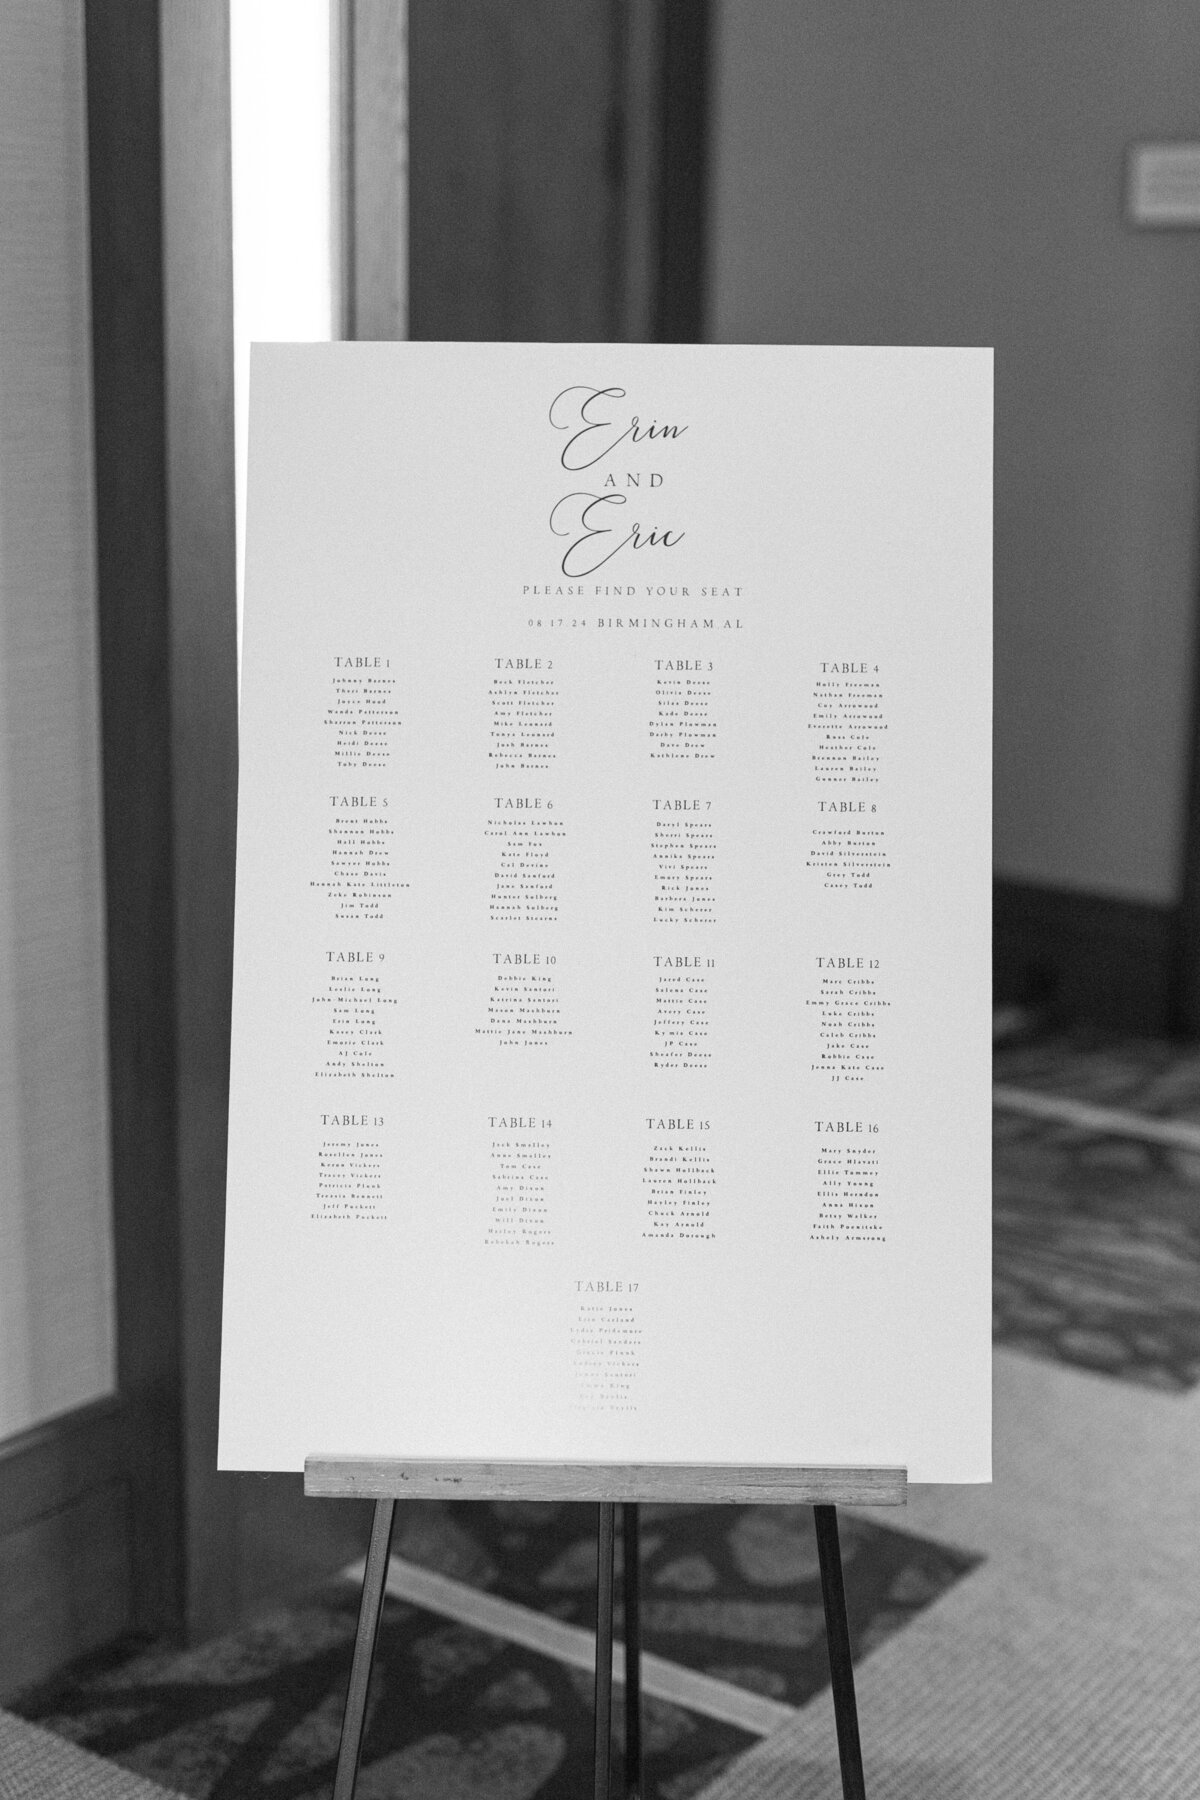 Erin
AND
Eric
PLEASE FIND YOUR SEAT
08 17 24 BIRMINGHAM, AL
TABLE 1
Johnny Barnes
Theri Barnes
Joyce Hood
Wanda Patterson
Sharron Patterson
Nick Deese
Heidi Deese
Millie Deese
Toby Deese
TABLE 2
Beck Fletcher
Ashlyn Fletcher
Scott Fletcher
Amy Fletcher
Mike Leonard
Tonya Leonard
Josh Barnes
Rebecca Barnes
John Barnes
TABLE 3
Kevin Deese
Olivia Deese
Silas Deese
Kade Deese
Dylan Plowman
Darby Plowman
Dave Drew
Kathlene Drew
TABLE 4
Holly Freeman
Nathan Freeman
Coy Arrowood
Emily Arrowood
Everette Arrowood
Russ Cole
Heather Cole
Brennon Bailey
Lauren Bailey
Gunner Bailey
TABLE 5
Brent Hobbs
Shannon Hobbs
Hall Hobbs
Hannah Drew
Sawyer Hobbs
Chase Davis
Hannah Kate Littleton
Zeke Robinson
Jim Todd
Susan Todd
TABLE 6
Nicholas Lawhon
Carol Ann Lawhon
Sam Fox
Kate Floyd
Cal Devine
David Sanford
Jane Sanford
Hunter Solberg
Hannah Solberg
Scarlet Stearns
TABLE 7
Daryl Spears
Sherri Spears
Stephen Spears
Annika Spears
Vivi Spears
Emory Spears
Rick Jones
Barbera Jones
Kim Scherer
Lucky Scherer
TABLE 8
Crawford Burton
Abby Burton
David Silverstein
Kristen Silverstein
Grey Todd
Casey Todd
TABLE 9
Brian Long
Leslie Long
John-Michael Long
Sam Long
Erin Long
Kasey Clark
Emorie Clark
AJ Cole
Andy Shelton
Elizabeth Shelton
TABLE 10
Debbie King
Kevin Santori
Katrina Santori
Mason Mashburn
Dana Mashburn
Mattie Jane Mashburn
John Jones
TABLE 11
Jared Case
Salena Case
Mattie Case
Avery Case
Jeffery Case
Kymis Case
JP Case
Sheafer Deese
Ryder Deese
TABLE 12
Marc Cribbs
Sarah Cribbs
Emmy Grace Cribbs
Luke Cribbs
Noah Cribbs
Caleb Cribbs
Jake Case
Robbie Case
Jenna Kate Case
JJ Case
TABLE 13
Jeremy Jones
Rosellen Jones
Keron Vickers
Tracey Vickers
Patricia Plunk
Treasia Bennett
Jeff Puckett
Elizabeth Puckett
TABLE 14
Jack Smalley
Anne Smalley
Tom Case
Sabrina Case
Amy Dixon
Joel Dixon
Emily Dixon
Will Dixon
Harley Rogers
Rebekah Rogers
TABLE 15
Zack Kellis
Brandi Kellis
Shawn Hollback
Lauren Hollback
Brian Finley
Hayley Finley
Chuck Arnold
Kay Arnold
Amanda Dorough
TABLE 16
Mary Snyder
Grace Hlavati
Ellie Tommey
Ally Young
Ellis Herndon
Anna Hixon
Betsy Walker
Faith Poenitske
Ashely Armstrong
TABLE 17
Katie Jones
Erin Garland
Lydia Pridemore
Gabriel Sanders
Gracie Plunk
Vickers
Santori
King